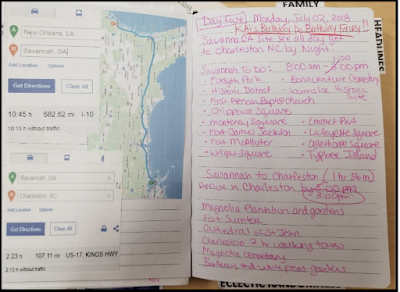 New Orleans, LA
Savannah, GA
Add Location Options
Get Directions Clear All
10:45 h 682.62 mi I-10
10:13 h without traffic
Savannah, GA
Charleston, SC
Add Location Options
Get Directions Clear All
2:23 h 107.11 mi US-17, KINGS HWY
2:12 h without traffic
FAMILY
HEADLINES
Day Five! Monday, July 02, 2018
KAi's Birthday
Savanna GA site see all day get
to charleston NC by Night
Savannah To Do: 8:00 am - 3:00 pm
Forsyth Park
Bonaventure Cemetery
Historic District
Wormsloe Historic
Site
First African Baptist church
Chippewa Square
Monterey Square
Emmet Park
Fort James Jackson
Lafayette Square
Fort McAllister
Oglethorpe Square
Wright Square
Tybee Island
Savannah to Charleston (1 hr 56 m)
Arrive in Charleston by 5:00 PM
3:00pm
Magnolia Plantation and gardens
Fort Sumter
Cathedral of St John
Charleston 2 hr walking tours
Magnolia cemetery
Battery and white point gardens